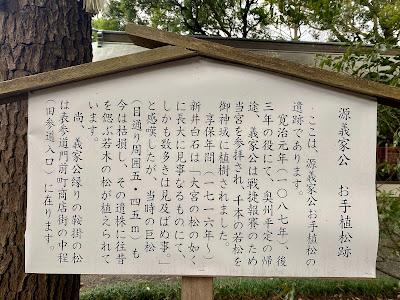 源義家公　お手植松跡
ここは、源義家公お手植松の
遺跡であります。
寛治元年（一〇八七年）、後
三年の役にて、奥州平定の帰
途、義家公は戦捷報賽のため
当宮を参拝され、千本の若松を
御神域に植樹されました。
享保年間（一七一六年〜）
新井白石は「大宮の松の如く
に長大に見事なるものにて、
しかも数多きは見及ばぬ事。」
と感嘆したが、当時の巨松
（目通り周囲五・四五m）も
今は枯損し、その遺株に往昔
を偲ぶ若木の松が植えられて
います。
尚、義家公縁りの鞍掛の松
は表参道門前町商店街の中程
（旧参道入口）に在ります。